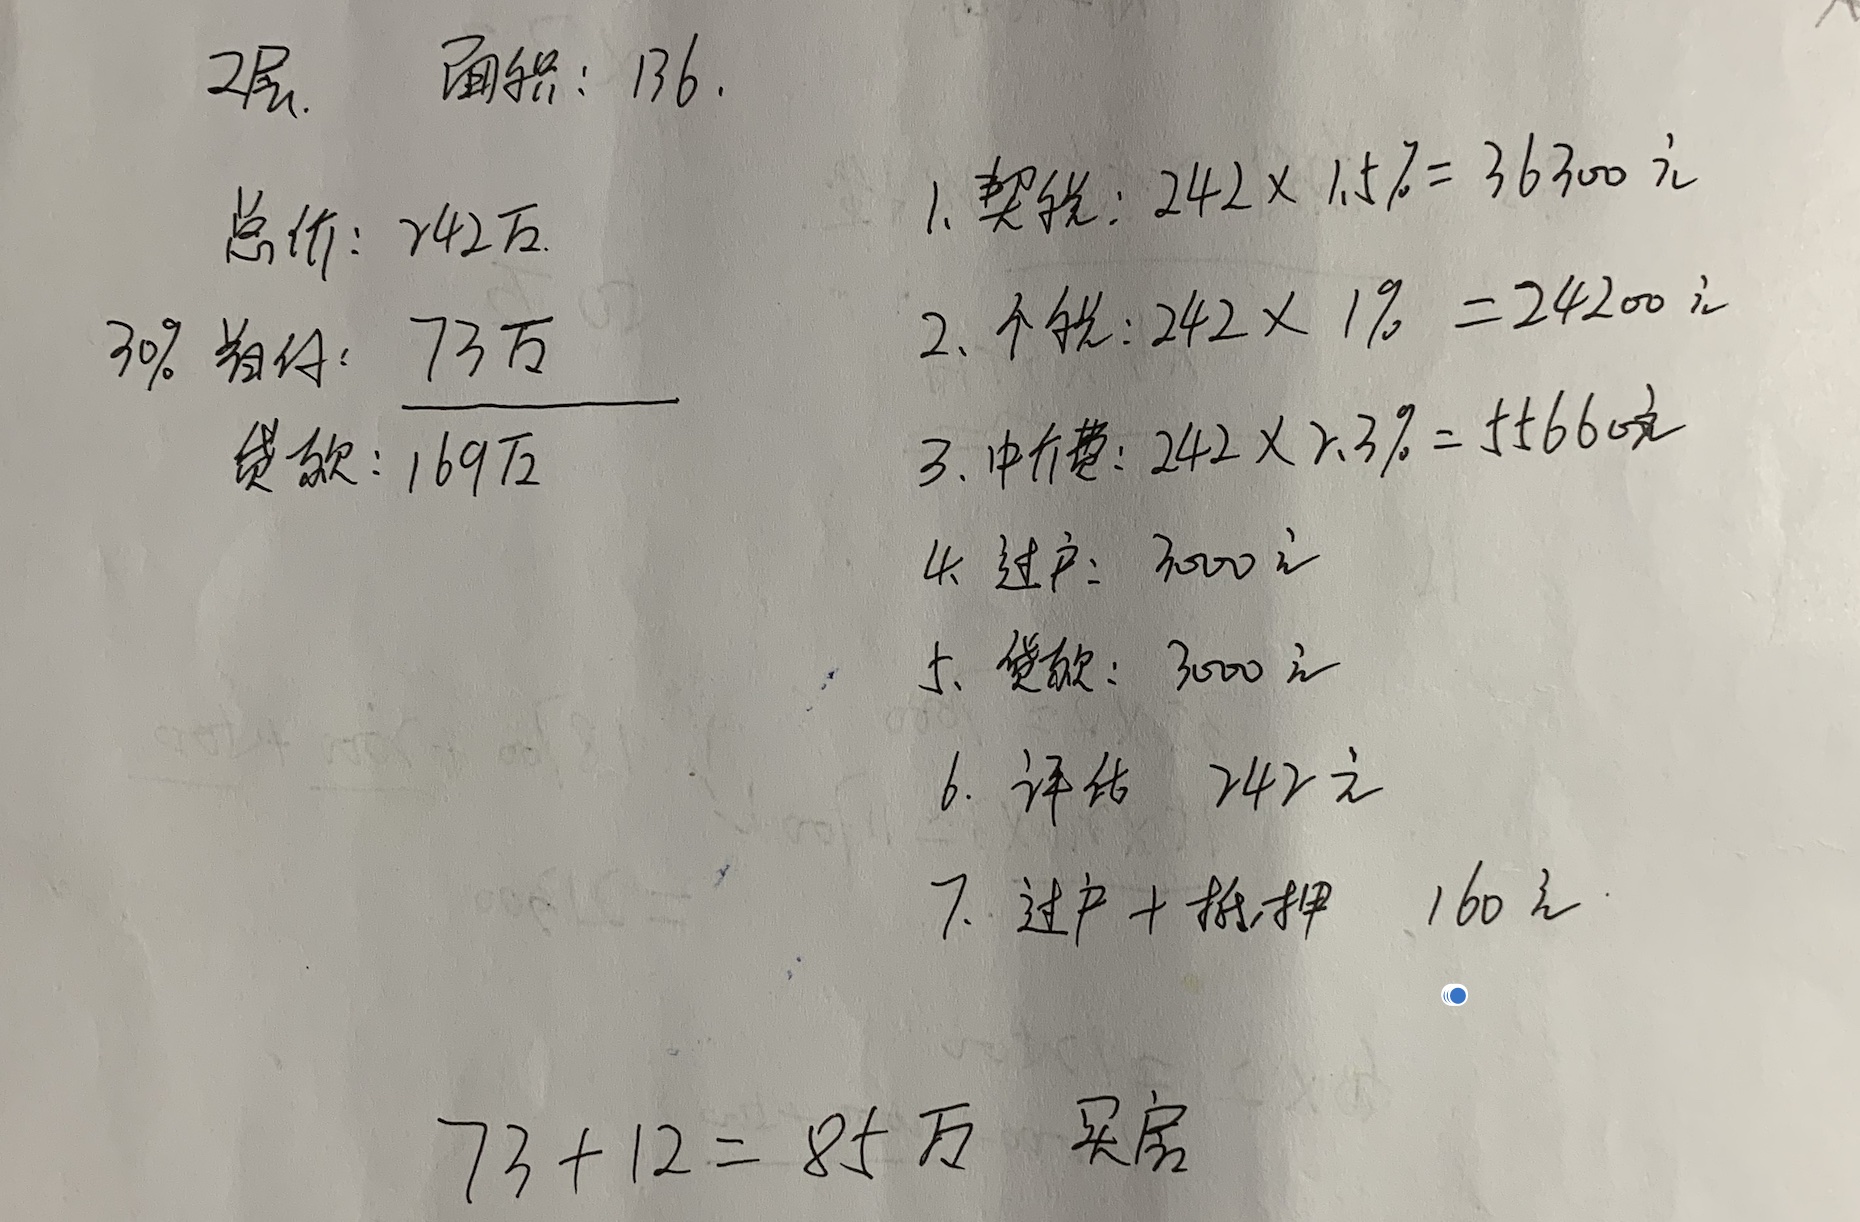 2层. 面积: 136.
总价: 242万.
30% 首付: 73万
贷款: 169万
1. 契税: 242 × 1.5% = 36300元
2、个税: 242 × 1% = 24200元
3、中介费: 242 × 2.3% = 55660元
4. 过户: 3000元
5、贷款: 3000元
6. 评估 242元
7. 过户 + 抵押 160元.
73 + 12 = 85万 买房